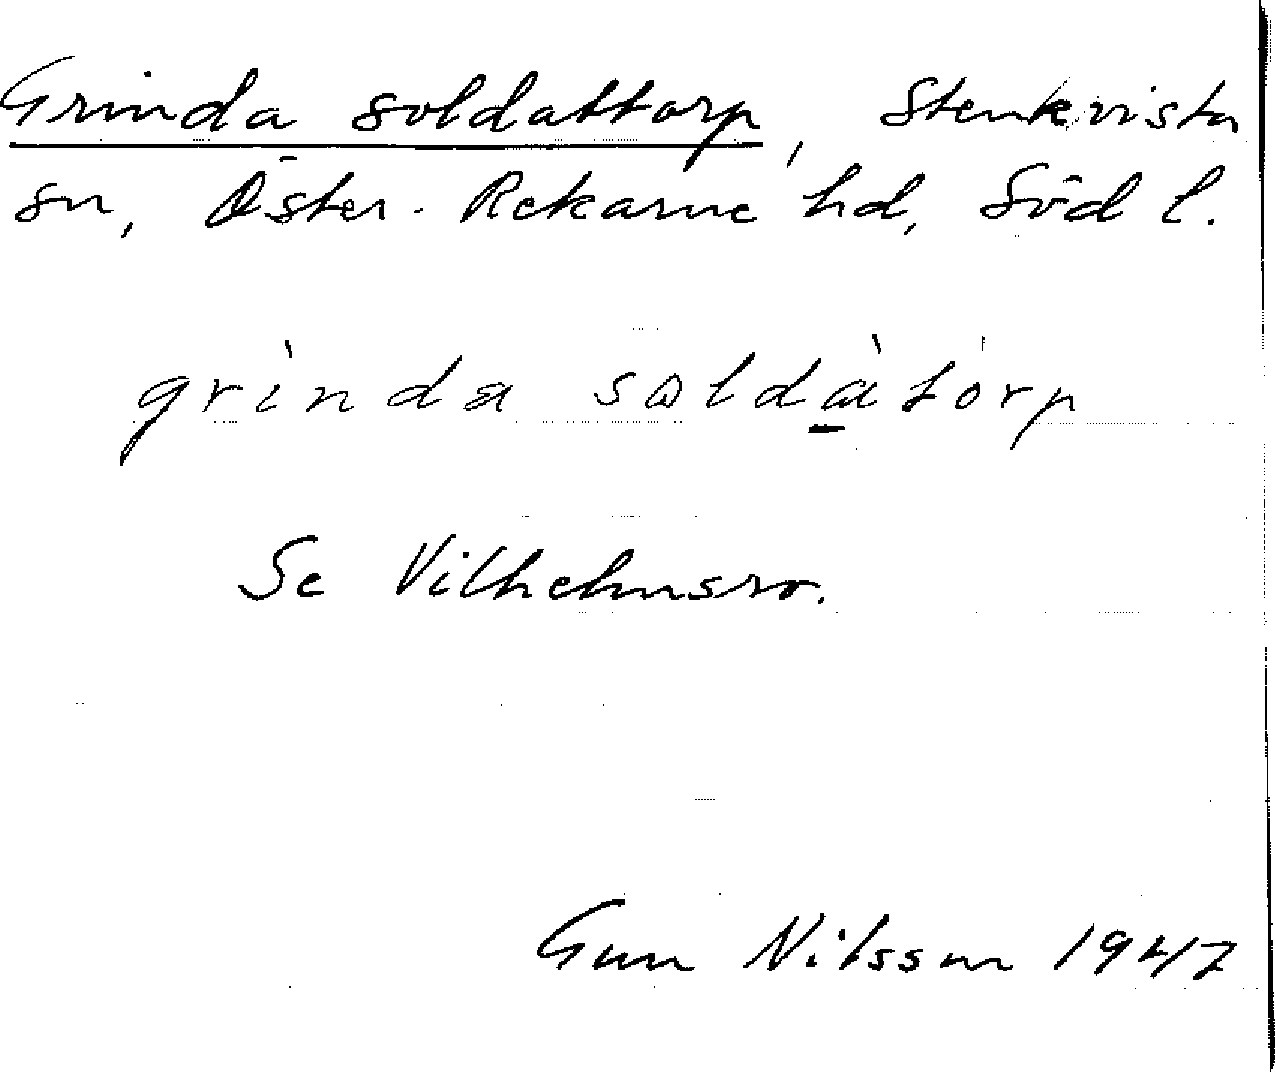 Grinda soldattorp, Stenkvista
sn, Öster-Rekarne hd, Söd l.
grìnda soldàtórp
Se Vilhelmsro.
Gun Nilsson 1947